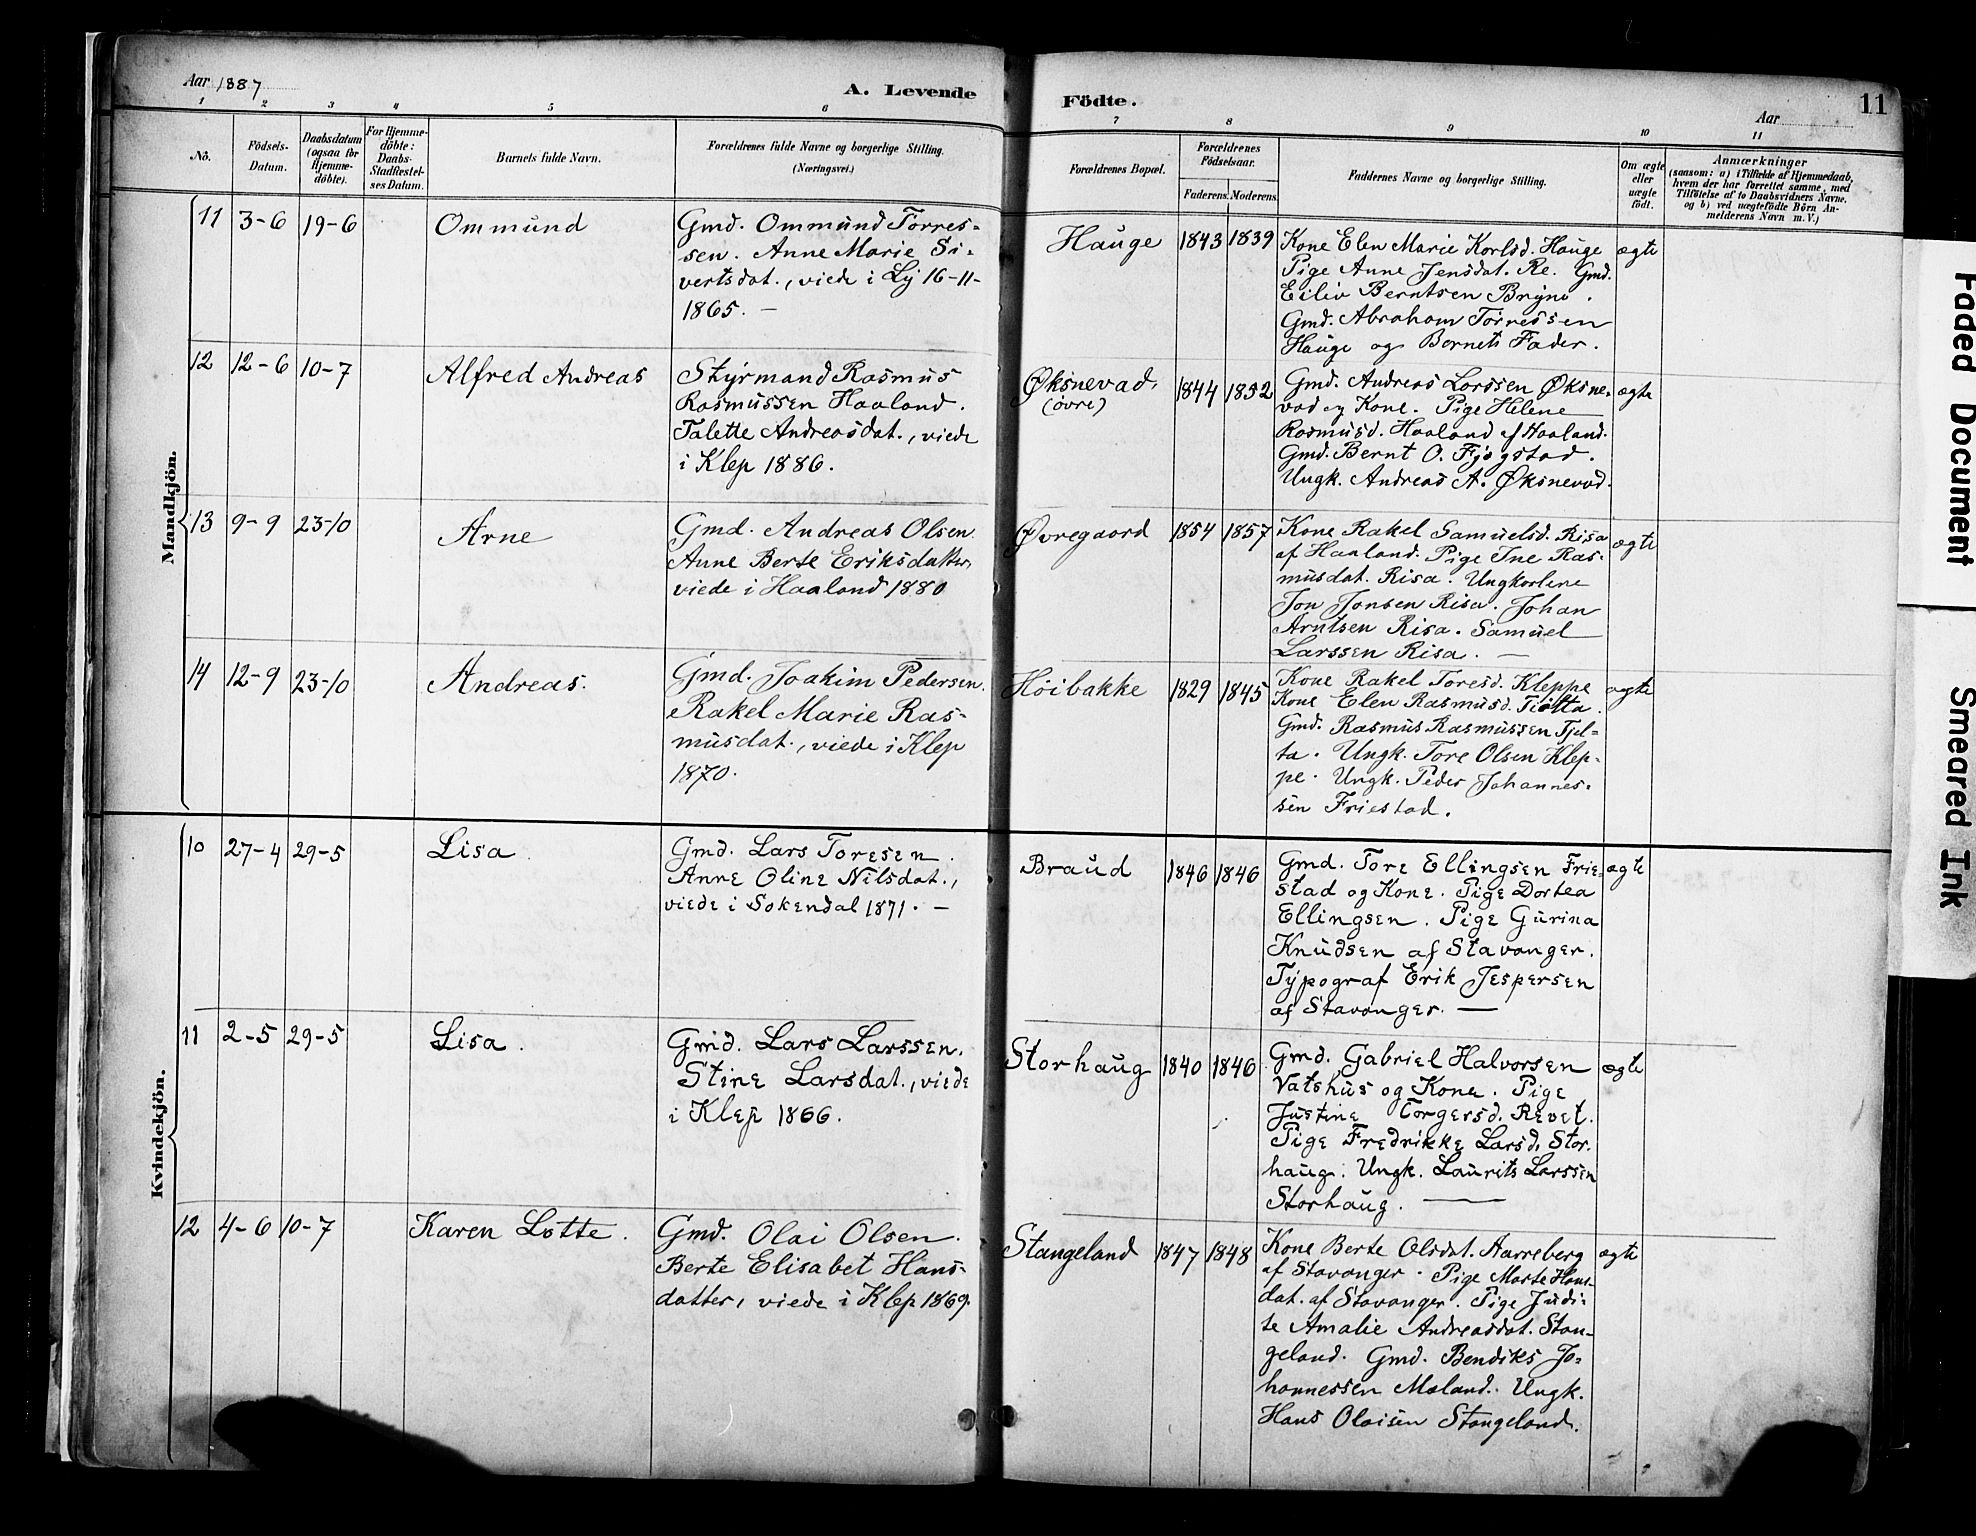 Aar 1887
A. Levende
Födte.
Aar
11
1 2 3 4 5 6 7 8 9 10 11
No.
Födsels-
Datum.
Daabsdatum
(ogsaa for
Hjemme-
döbte).
For Hjemme-
döbte:
Daabs-
Stadfæstel-
ses Datum.
Barnets fulde Navn.
Forældrenes fulde Navne og borgerlige Stilling.
(Næringsvei.)
Forældrenes Bopæl.
Forældrenes
Födselsaar.
Faderens. Moderens.
Faddernes Navne og borgerlige Stilling.
Om ægte
eller
uægte
födt.
Anmærkninger
(saasom: a) i Tilfælde af Hjemmedaab,
hvem der har forrettet samme, med
Tilföielse af to Daabsvidners Navne,
og b) ved uægtefödte Börn An-
melderens Navn m. V.)
Mandkjön.
11 3-6 19-6 Ommund
Gmd. Ommund Torres-
sen. Anne Marie Si-
vertsdat., viede i Ly 16-11-
1865. —
Hauge 1843 1839
Kone Elen Marie Karlsd. Hauge
Pige Anne Jensdat. Re. Gmd.
Eiliv Berntsen Bryne.
Gmd. Abraham Torressen
Hauge og Barnets Fader.
ægte
12 12-6 10-7 Alfred Andreas
Styrmand Rasmus
Rasmussen Haaland.
Talette Andreasdat., viede
i Klep 1886.
Øksnevad,
(øvre)
1844 1852
Gmd. Andreas Larssen Øksne-
vad og Kone. Pige Helene
Rasmusd. Haaland af Haaland.
Gmd. Bernt O. Fjogstad.
Ungk. Andreas A. Øksnevad.
ægte
13 9-9 23-10 Arne
Gmd. Andreas Olsen.
Anne Berte Eriksdatter,
viede i Haaland 1880
Øvregaard 1854 1857
Kone Rakel Samuelsd. Risa
af Haaland. Pige Ine Ras-
musdat. Risa. Ungkarlene
Jon Jonsen Risa. Johan
Arntsen Risa. Samuel
Larssen Risa. —
ægte
14 12-9 23-10 Andreas.
Gmd. Joakim Pedersen.
Rakel Marie Ras-
musdat., viede i Klep
1870.
Høibakke 1829 1845
Kone Rakel Toresd. Kleppe
Kone Elen Rasmusd. Tjøtta.
Gmd. Rasmus Rasmussen Tjel-
ta. Ungk. Tore Olsen Klep-
pe. Ungk. Peder Johannes-
sen Friestad.
ægte
Kvindekjön.
10 27-4 29-5 Lisa.
Gmd. Lars Toresen.
Anne Oline Nilsdat.,
viede i Sokendal 1871. —
Braud 1846 1846
Gmd. Tore Ellingsen Frie-
stad og Kone. Pige Dortea
Ellingsen. Pige Gurina
Knudsen af Stavanger.
Typograf Erik Jespersen
af Stavanger. —
ægte
11 2-5 29-5 Lisa.
Gmd. Lars Larssen.
Stine Larsdat., viede
i Klep 1866.
Storhaug 1840 1846
Gmd. Gabriel Halvorsen
Vatshus og Kone. Pige
Justine Torgersd. Revet.
Pige Fredrikke Larsd. Stor-
haug. Ungk. Laurits Larssen
Storhaug. —
ægte
12 4-6 10-7 Karen Lotte.
Gmd. Olai Olsen.
Berte Elisabet Hans-
datter, viede i Klep 1869.
Stangeland 1847 1848
Kone Berte Olsdat. Aarreberg
af Stavanger. Pige Marte Hans-
dat. af Stavanger. Pige Judi-
te Amalie Andreasdat. Stan-
geland. Gmd. Bendiks Jo-
hannessen Maland. Ungk.
Hans Olaisen Stangeland.
ægte
Faded Document
Smeared Ink